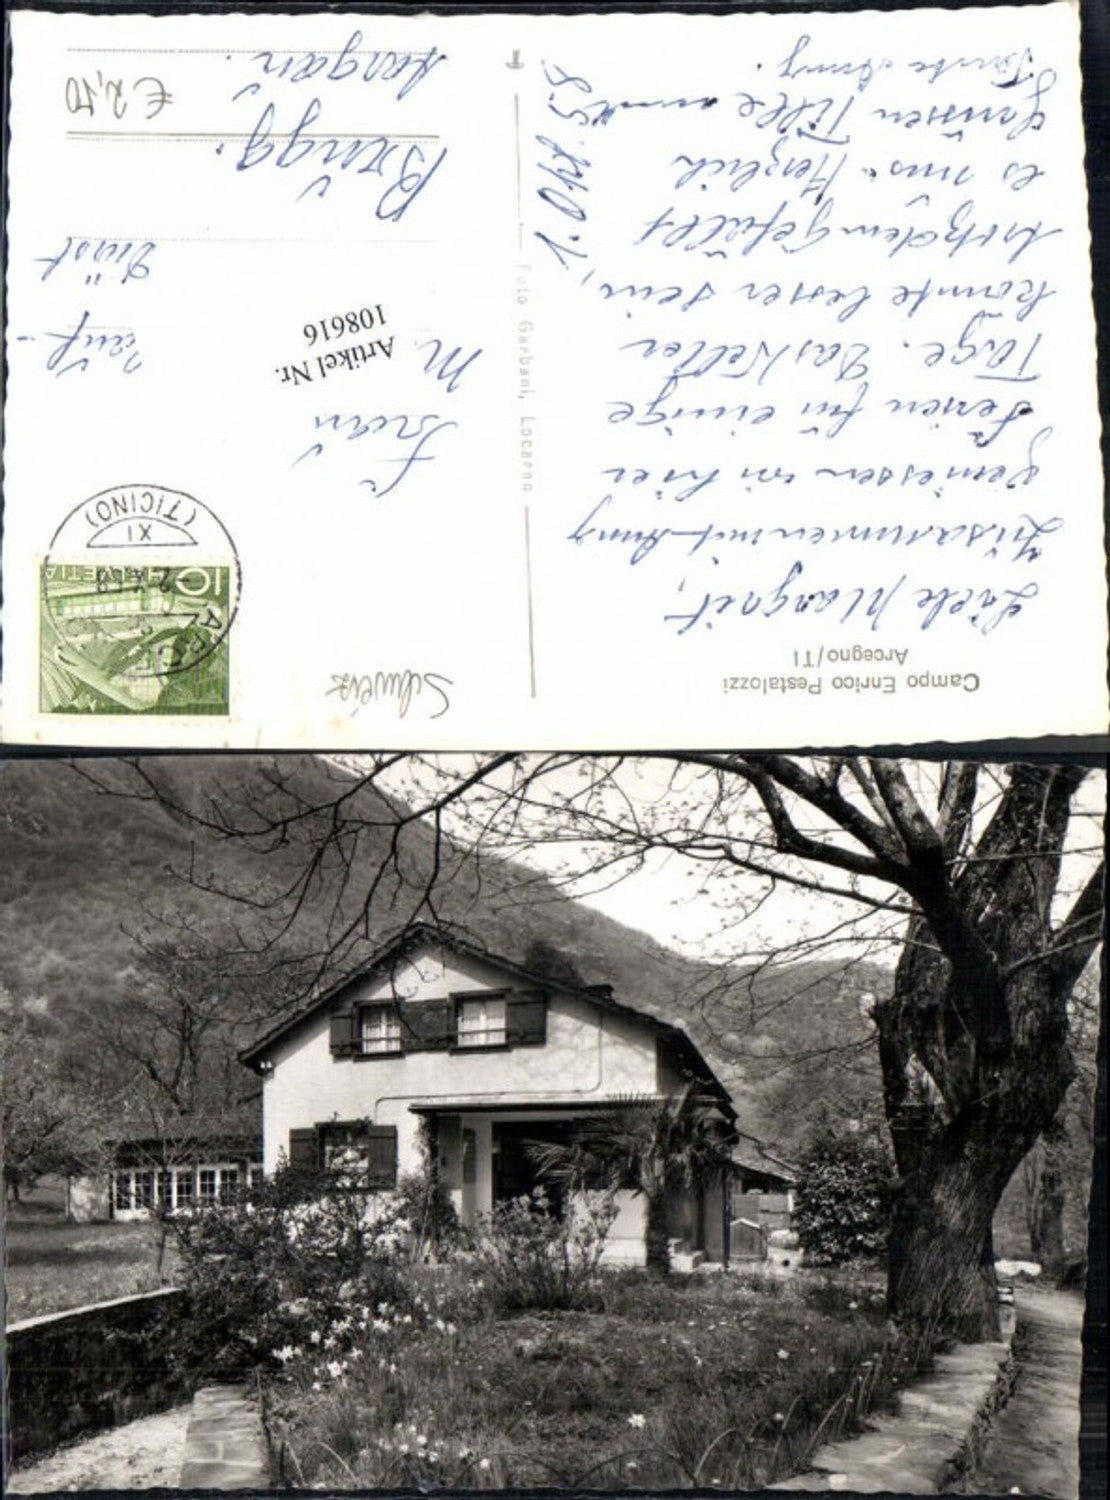 Campo Enrico Pestalozzi
Arcegno/TI
Liebe Margrit,
Zusammen mit Anny
geniessen wir hier
Ferien für einige
Tage. Das Wetter
könnte besser sein,
trotzdem gefällt
es uns. Herzlich
Grüssen Tilla und
Tante Anny.
Foto Garbani, Locarno
Schweiz
10 HELVETIA
XI
(TICINO)
Frau
M.
Artikel Nr.
108616
Brugg.
Aargau.
€ 2,50